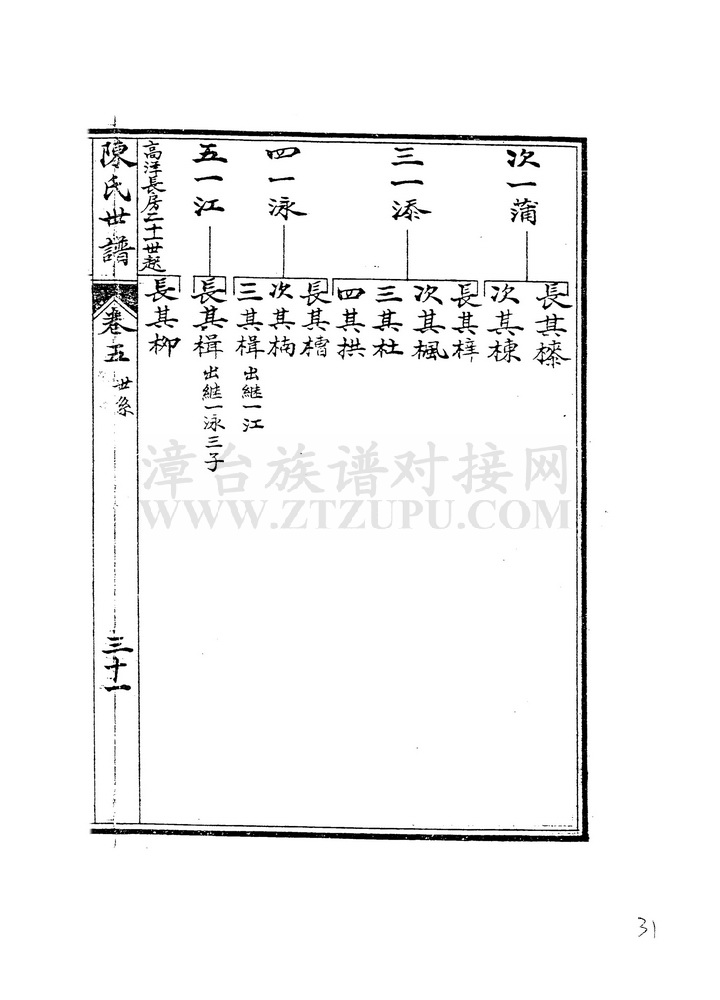 次一蒲
三一添
四一泳
五一江
高洋長房二十世起
長其榛
次其棟
長其梓
次其楓
三其杜
四其拱
長其槽
次其楠
三其楫 出繼一江
長其楫 出繼一泳三子
長其柳
陳氏世譜
卷五 世系
三十一
漳台族谱对接网
WWW.ZTZUPU.COM
31